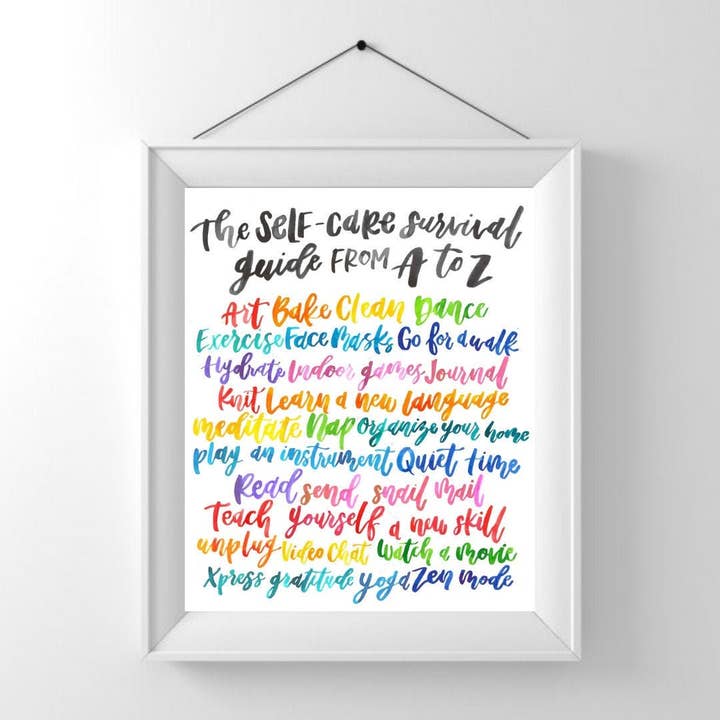 The SELF-CARE survival
guide FROM A to Z
Art Bake Clean Dance
Exercise Face Masks Go for a walk
Hydrate Indoor games Journal
Knit Learn a new language
meditate Nap Organize your home
play an instrument Quiet time
Read send snail mail
Teach yourself a new skill
unplug Video Chat Watch a movie
Xpress gratitude yoga Zen mode